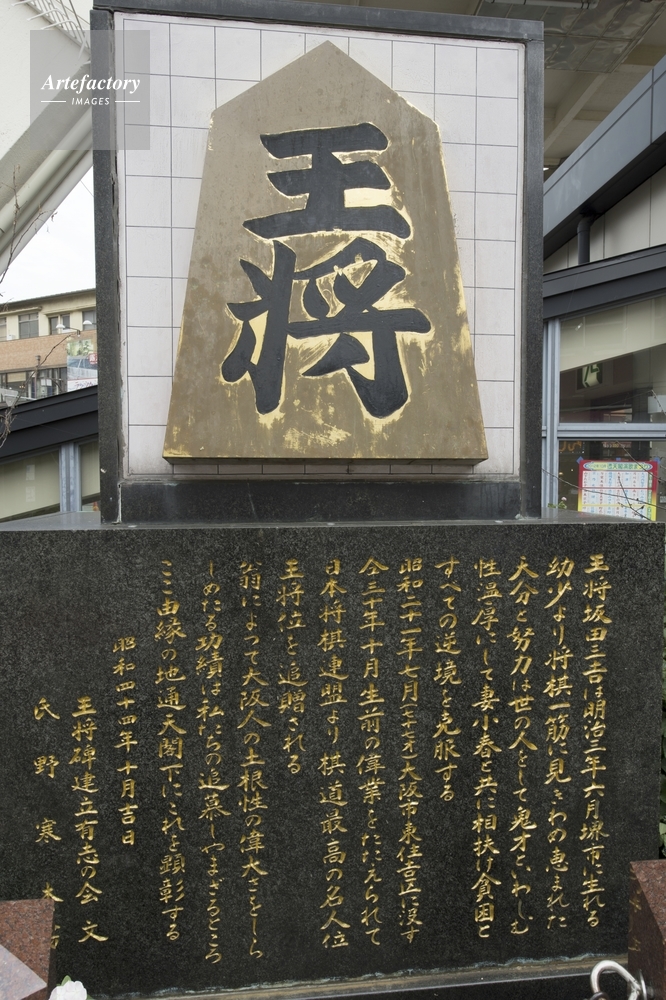 Artefactory
IMAGES
王将
王将坂田三吉は明治三年六月堺市に生れる
幼少より将棋一筋に見きわめ恵まれた
天分と努力は世の人をして鬼才といわしむ
性温厚にして妻小春と共に相扶け貧困と
すべての逆境を克服する
昭和二十一年七月(七十七才)大阪市東住吉区に没す
仝三十年十月生前の偉業をたたえられて
日本将棋連盟より棋道最高の名人位
王将位を追贈される
翁によつて大阪人の土根性の偉大さをしら
しめたる功績は私たちの追慕しやまざるところ
ここ由縁の地通天閣下にこれを顕彰する
昭和四十四年十月吉日
王将碑建立有志の会 文
氏野寒